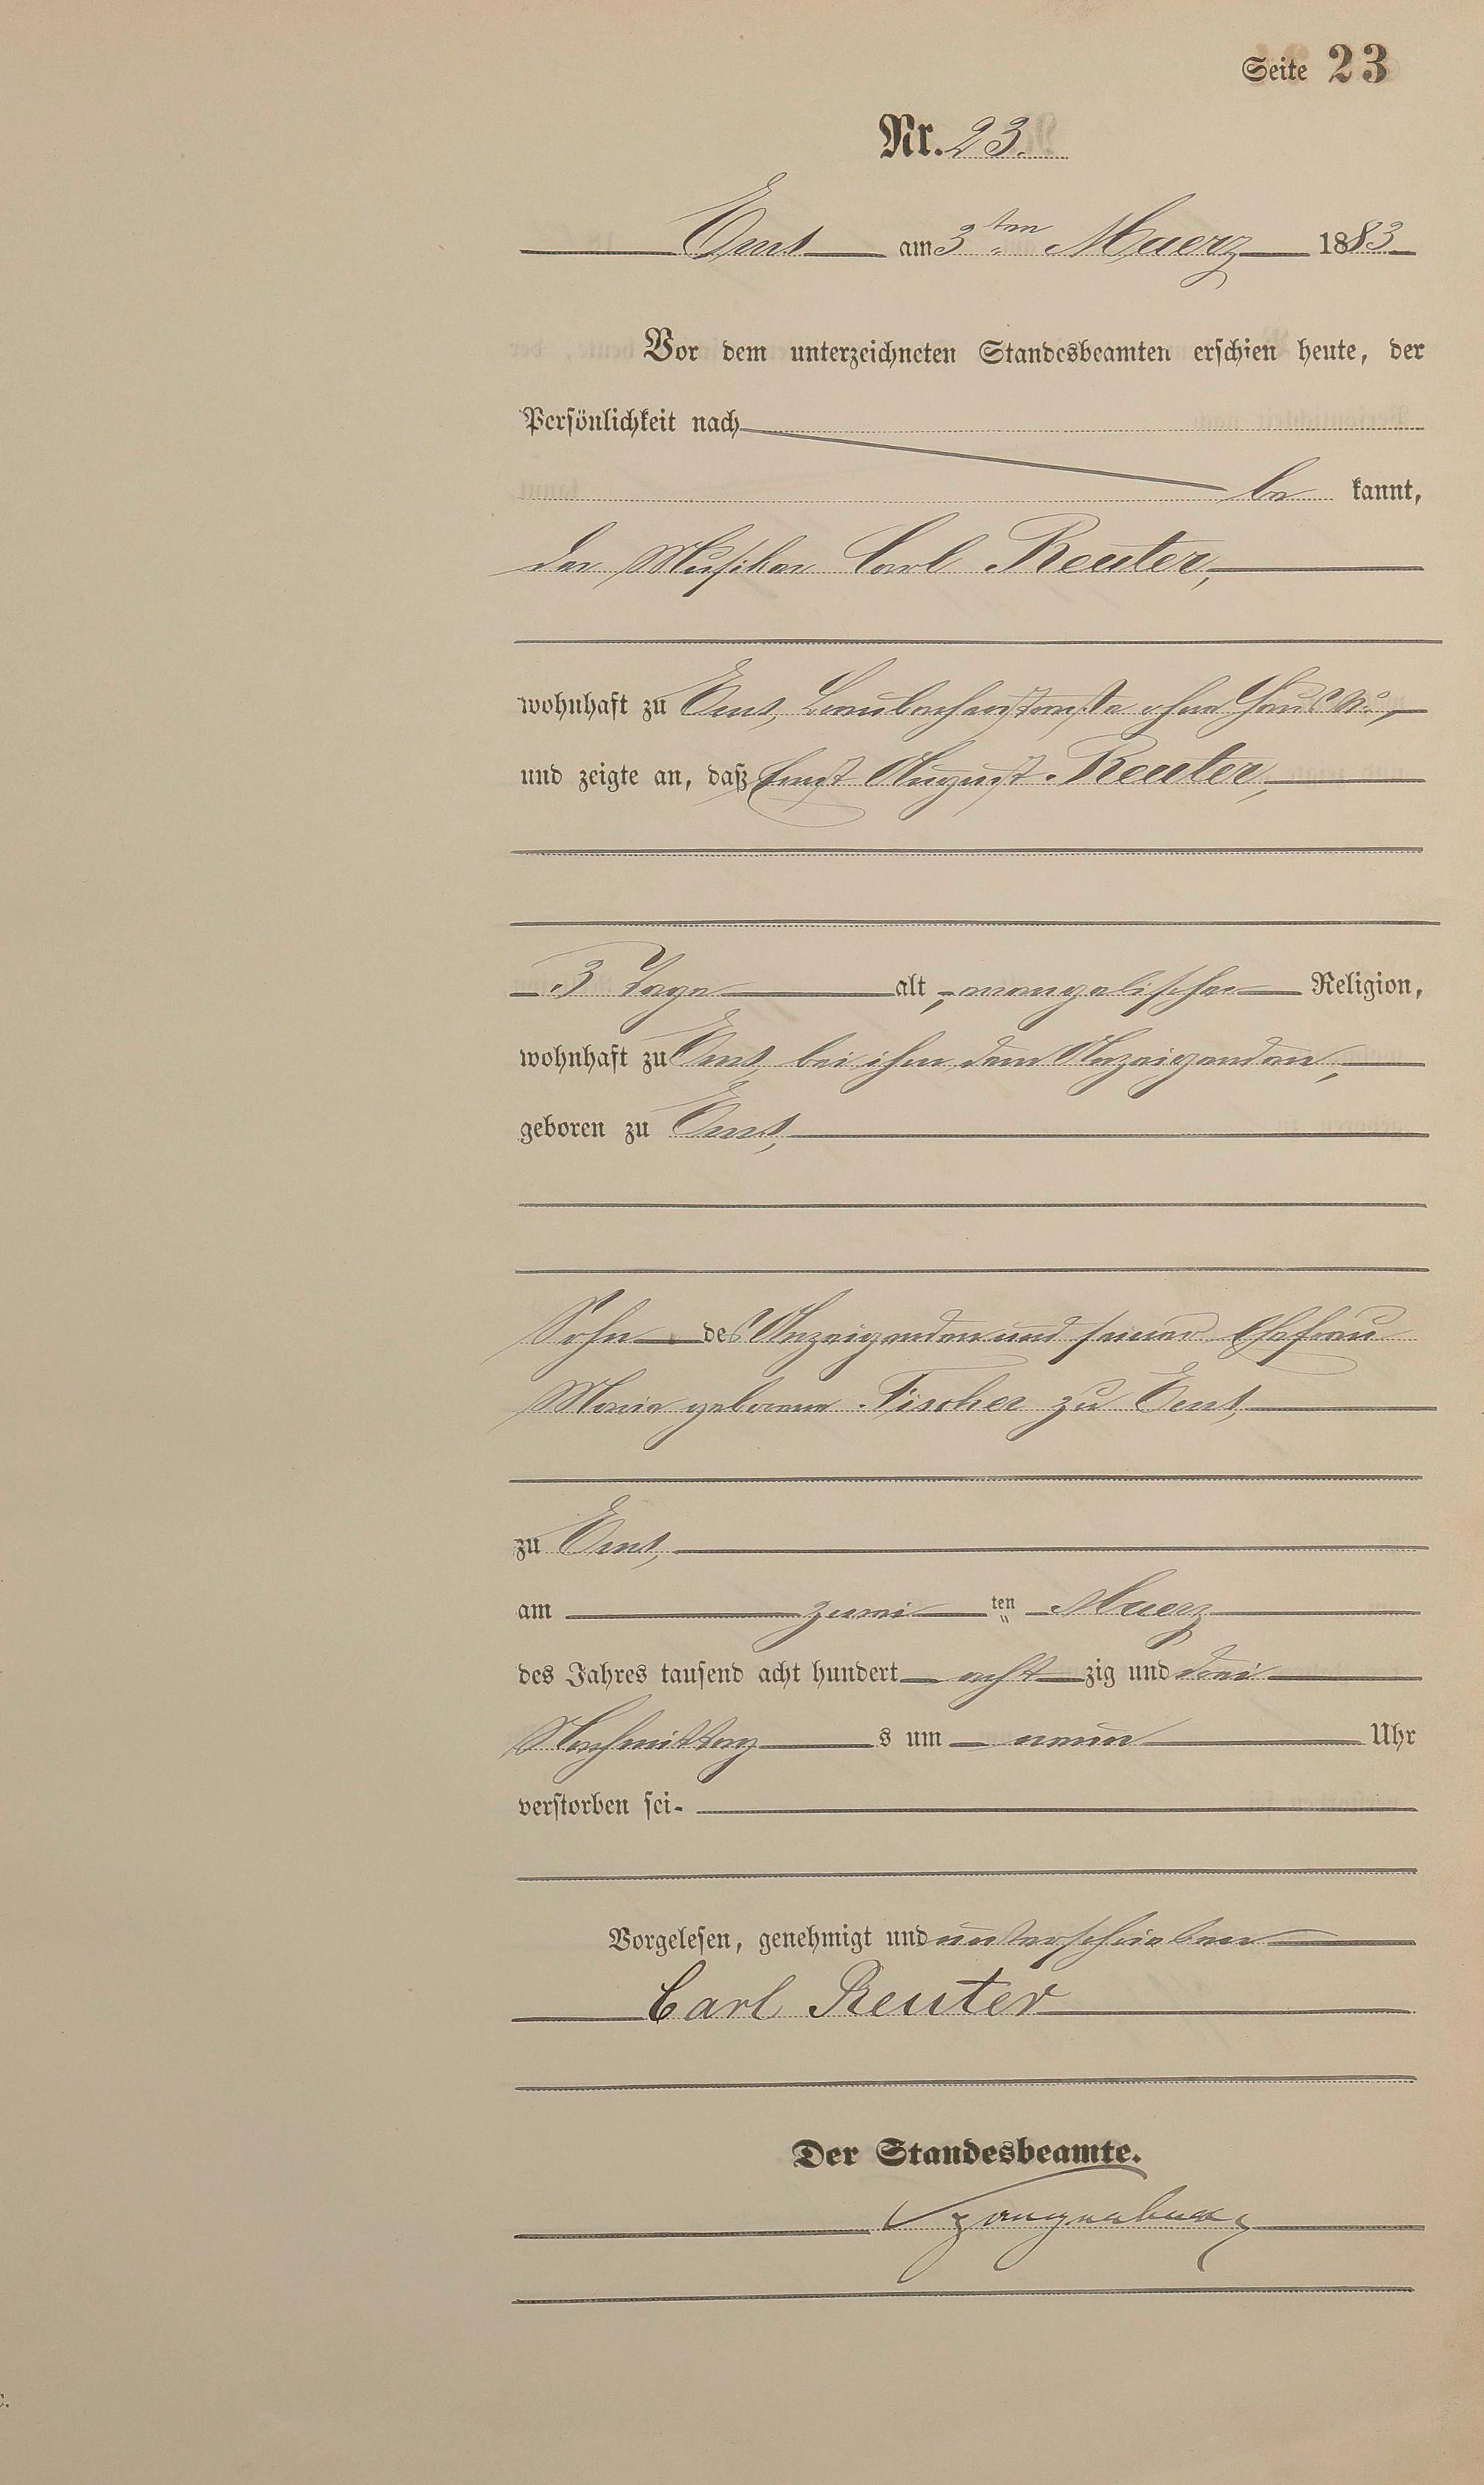 Seite 23
Nr. 23.
Ems am 3ten Maerz 1883
Vor dem unterzeichneten Standesbeamten erschien heute, der
Persönlichkeit nach
be kannt,
der Musiker Carl Reuter,
wohnhaft zu Ems, ohne Haus No.,
und zeigte an, daß Ernst August Reuter,
3 Tage alt, evangelischer Religion,
wohnhaft zu Ems, bei ihm, dem Anzeigenden,
geboren zu Ems,
Sohn des Anzeigenden und seiner Ehefrau
Maria geborene Fischer zu Ems,
zu Ems,
am zwei ten Maerz
des Jahres tausend acht hundert acht zig und drei
Nachmittag s um neun Uhr
verstorben sei.
Vorgelesen, genehmigt und unterschrieben
Carl Reuter
Der Standesbeamte.